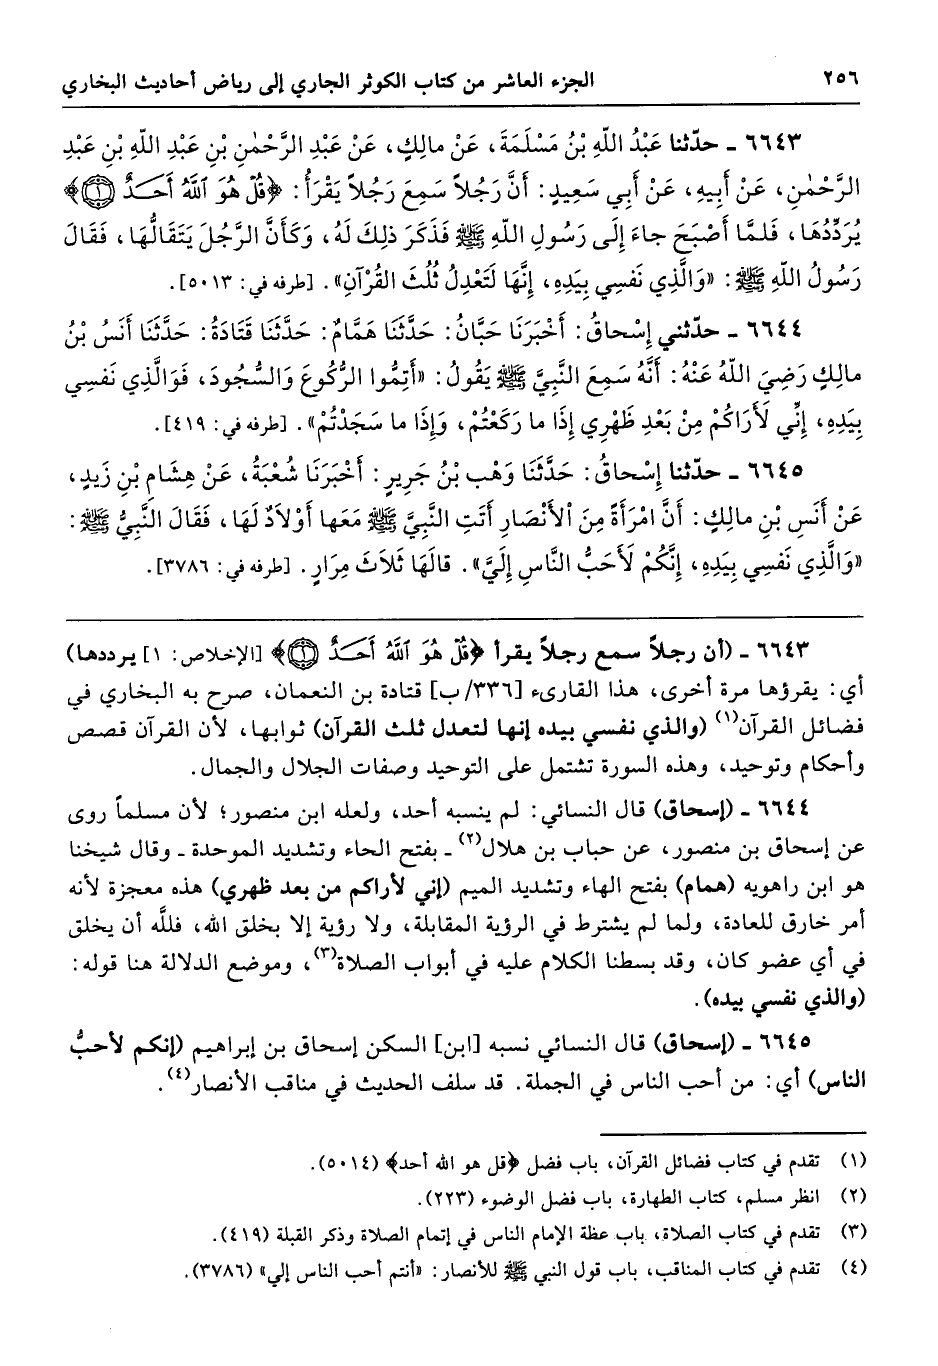 ٢٥٦ الجزء العاشر من كتاب الكوثر الجاري إلى رياض أحاديث البخاري
٦٦٤٣ ـ حدّثنا عَبْدُ اللّهِ بْنُ مَسْلَمَةَ، عَنْ مالِكٍ، عَنْ عَبْدِ الرَّحْمٰنِ بْنِ عَبْدِ اللّهِ بْنِ عَبْدِ
الرَّحْمٰنِ، عَنْ أَبِيهِ، عَنْ أَبِي سَعِيدٍ: أَنَّ رَجُلاً سَمِعَ رَجُلاً يَقْرَأُ: ﴿قُلْ هُوَ ٱللَّهُ أَحَـدٌ ۝١﴾
يُرَدِّدُهَا، فَلَمَّا أَصْبَحَ جاءَ إِلَى رَسُولِ اللّهِ ﷺ فَذَكَرَ ذلِكَ لَهُ، وَكَأَنَّ الرَّجُلَ يَتَقَالُّهَا، فَقَالَ
رَسُولُ اللّهِ ﷺ: «وَالَّذِي نَفْسِي بِيَدِهِ، إِنَّهَا لَتَعْدِلُ ثُلُثَ القُرْآنِ». [طرفه في: ٥٠١٣].
٦٦٤٤ ـ حدّثني إِسْحاقُ: أَخْبَرَنَا حَبَّانُ: حَدَّثَنَا هَمَّامٌ: حَدَّثَنَا قَتَادَةُ: حَدَّثَنَا أَنَسُ بْنُ
مالِكٍ رَضِيَ اللّهُ عَنْهُ: أَنَّهُ سَمِعَ النَّبِيَّ ﷺ يَقُولُ: «أَتِمُّوا الرُّكُوعَ وَالسُّجُودَ، فَوَالَّذِي نَفْسِي
بِيَدِهِ، إِنِّي لَأَرَاكُمْ مِنْ بَعْدِ ظَهْرِي إِذَا ما رَكَعْتُمْ، وَإِذَا ما سَجَدْتُمْ». [طرفه في: ٤١٩].
٦٦٤٥ ـ حدّثنا إِسْحاقُ: حَدَّثَنَا وَهْبُ بْنُ جَرِيرٍ: أَخْبَرَنَا شُعْبَةُ، عَنْ هِشَامِ بْنِ زَيدٍ،
عَنْ أَنَسِ بْنِ مالِكٍ: أَنَّ امْرَأَةً مِنَ الأَنْصَارِ أَتَتِ النَّبِيَّ ﷺ مَعَها أَوْلاَدٌ لَهَا، فَقَالَ النَّبِيُّ ﷺ:
«وَالَّذِي نَفْسِي بِيَدِهِ، إِنَّكُمْ لَأَحَبُّ النَّاسِ إِلَيَّ». قالَهَا ثَلاَثَ مِرَارٍ. [طرفه في: ٣٧٨٦].
٦٦٤٣ ـ (أن رجلاً سمع رجلاً يقرأ ﴿قُلْ هُوَ ٱللَّهُ أَحَـدٌ ۝١﴾ [الإخلاص: ١] يرددها)
أي: يقرؤها مرة أخرى، هذا القارىء [٣٣٦/ب] قتادة بن النعمان، صرح به البخاري في
فضائل القرآن(١) (والذي نفسي بيده إنها لتعدل ثلث القرآن) ثوابها، لأن القرآن قصص
وأحكام وتوحيد، وهذه السورة تشتمل على التوحيد وصفات الجلال والجمال.
٦٦٤٤ ـ (إسحاق) قال النسائي: لم ينسبه أحد، ولعله ابن منصور؛ لأن مسلماً روى
عن إسحاق بن منصور، عن حباب بن هلال(٢) ـ بفتح الحاء وتشديد الموحدة ـ وقال شيخنا
هو ابن راهويه (همام) بفتح الهاء وتشديد الميم (إني لأراكم من بعد ظهري) هذه معجزة لأنه
أمر خارق للعادة، ولما لم يشترط في الرؤية المقابلة، ولا رؤية إلا بخلق الله، فللَّه أن يخلق
في أي عضو كان، وقد بسطنا الكلام عليه في أبواب الصلاة(٣)، وموضع الدلالة هنا قوله:
(والذي نفسي بيده).
٦٦٤٥ ـ (إسحاق) قال النسائي نسبه [ابن] السكن إسحاق بن إبراهيم (إنكم لأحبُّ
الناس) أي: من أحب الناس في الجملة. قد سلف الحديث في مناقب الأنصار(٤).
(١) تقدم في كتاب فضائل القرآن، باب فضل ﴿قل هو الله أحد﴾ (٥٠١٤).
(٢) انظر مسلم، كتاب الطهارة، باب فضل الوضوء (٢٢٣).
(٣) تقدم في كتاب الصلاة، باب عظة الإمام الناس في إتمام الصلاة وذكر القبلة (٤١٩).
(٤) تقدم في كتاب المناقب، باب قول النبي ﷺ للأنصار: «أنتم أحب الناس إلي» (٣٧٨٦).